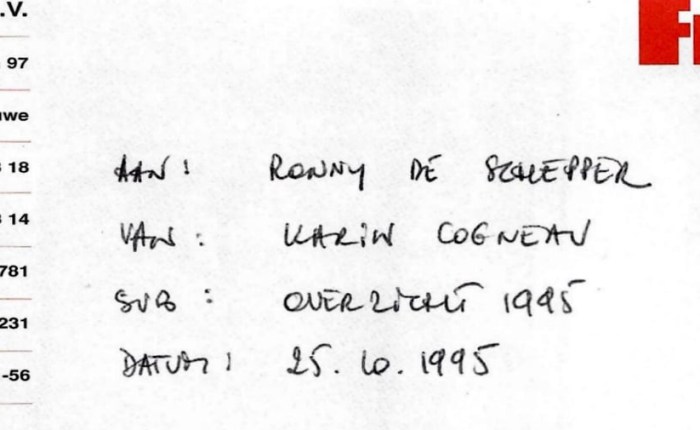 .V.
97
uwe
18
14
781
231
-56
AAN: RONNY DE SCHEPPER
VAN: KARIN COGNEAU
SUB: OVERZICHT 1995
DATUM: 25.10.1995